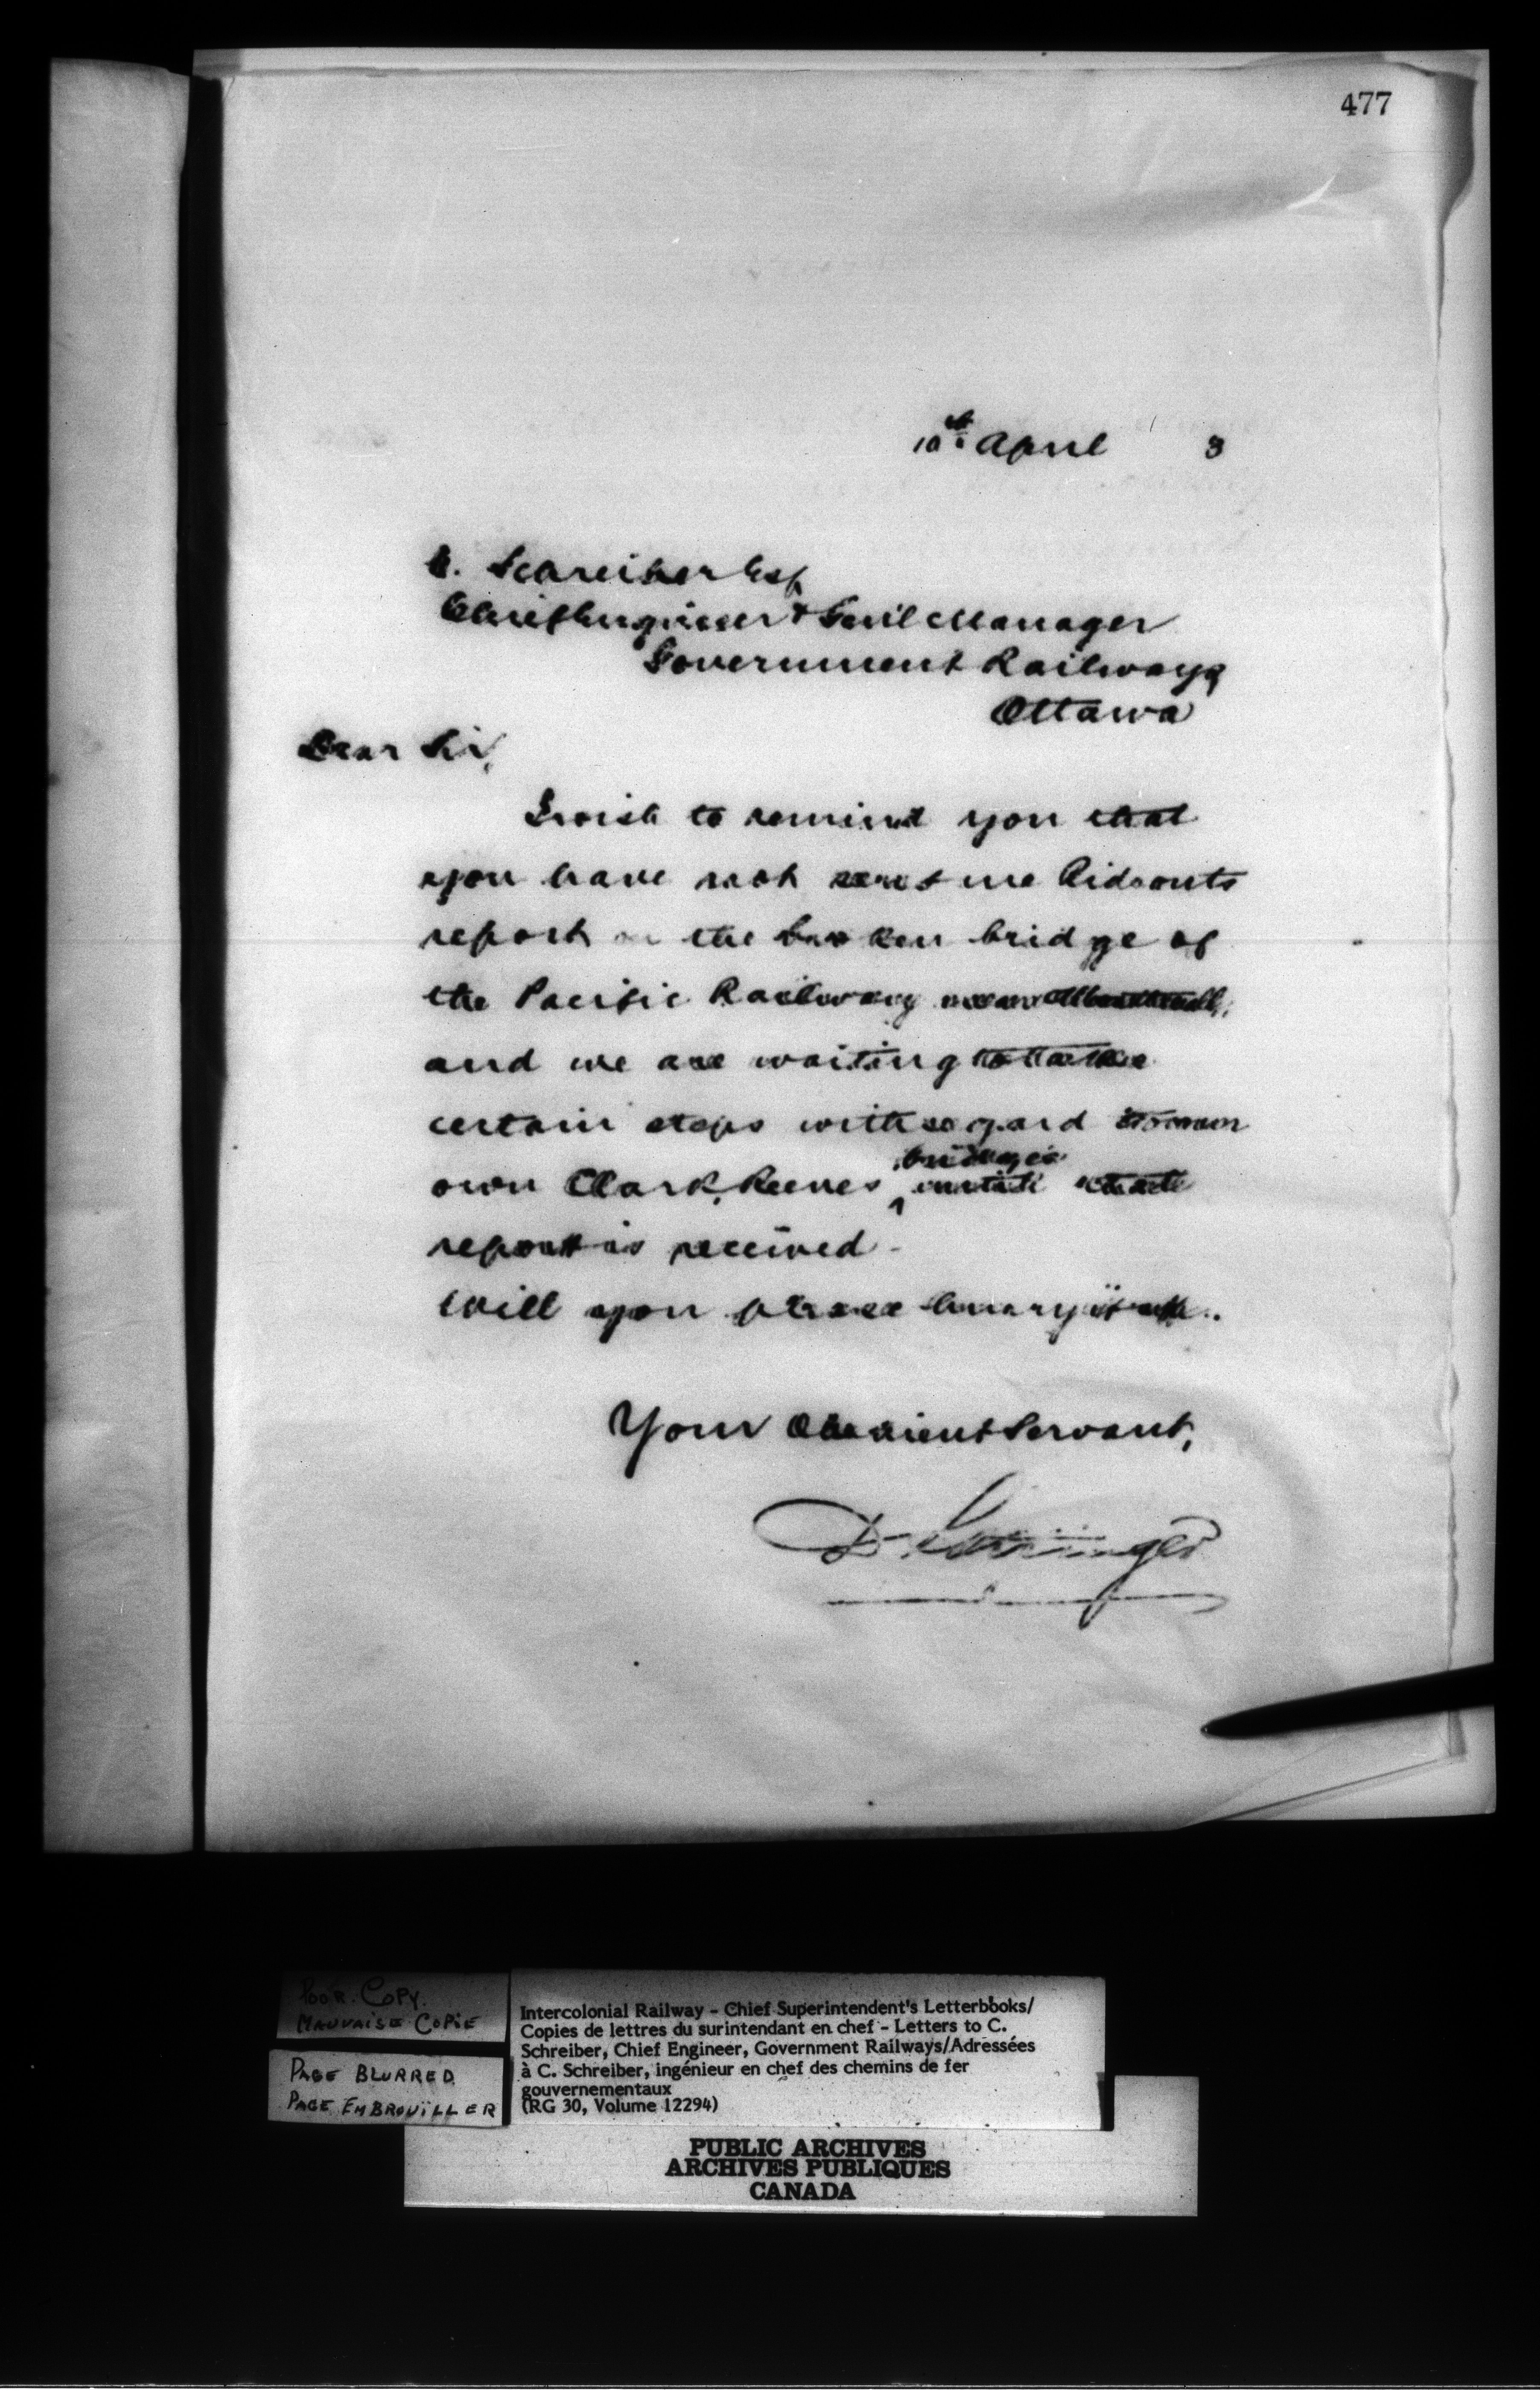 477
10th April 3
C. Schreiber Esq
Chief Engineer & Genl Manager
Government Railways,
Ottawa
Dear Sir,
I wish to remind you that
you have not sent me Rideouts
report on the broken bridge of
the Pacific Railway near
and we are waiting to take
certain steps with regard to our
own Clark, Reeves bridges until that
report is received -
Will you please hurry it up.
Your Obedient Servant,
D. Pottinger
POOR COPY.
MAUVAISE COPIE
PAGE BLURRED
PAGE EMBROUILLER
Intercolonial Railway - Chief Superintendent's Letterbooks/
Copies de lettres du surintendant en chef - Letters to C.
Schreiber, Chief Engineer, Government Railways/Adressées
à C. Schreiber, ingénieur en chef des chemins de fer
gouvernementaux
(RG 30, Volume 12294)
PUBLIC ARCHIVES
ARCHIVES PUBLIQUES
CANADA